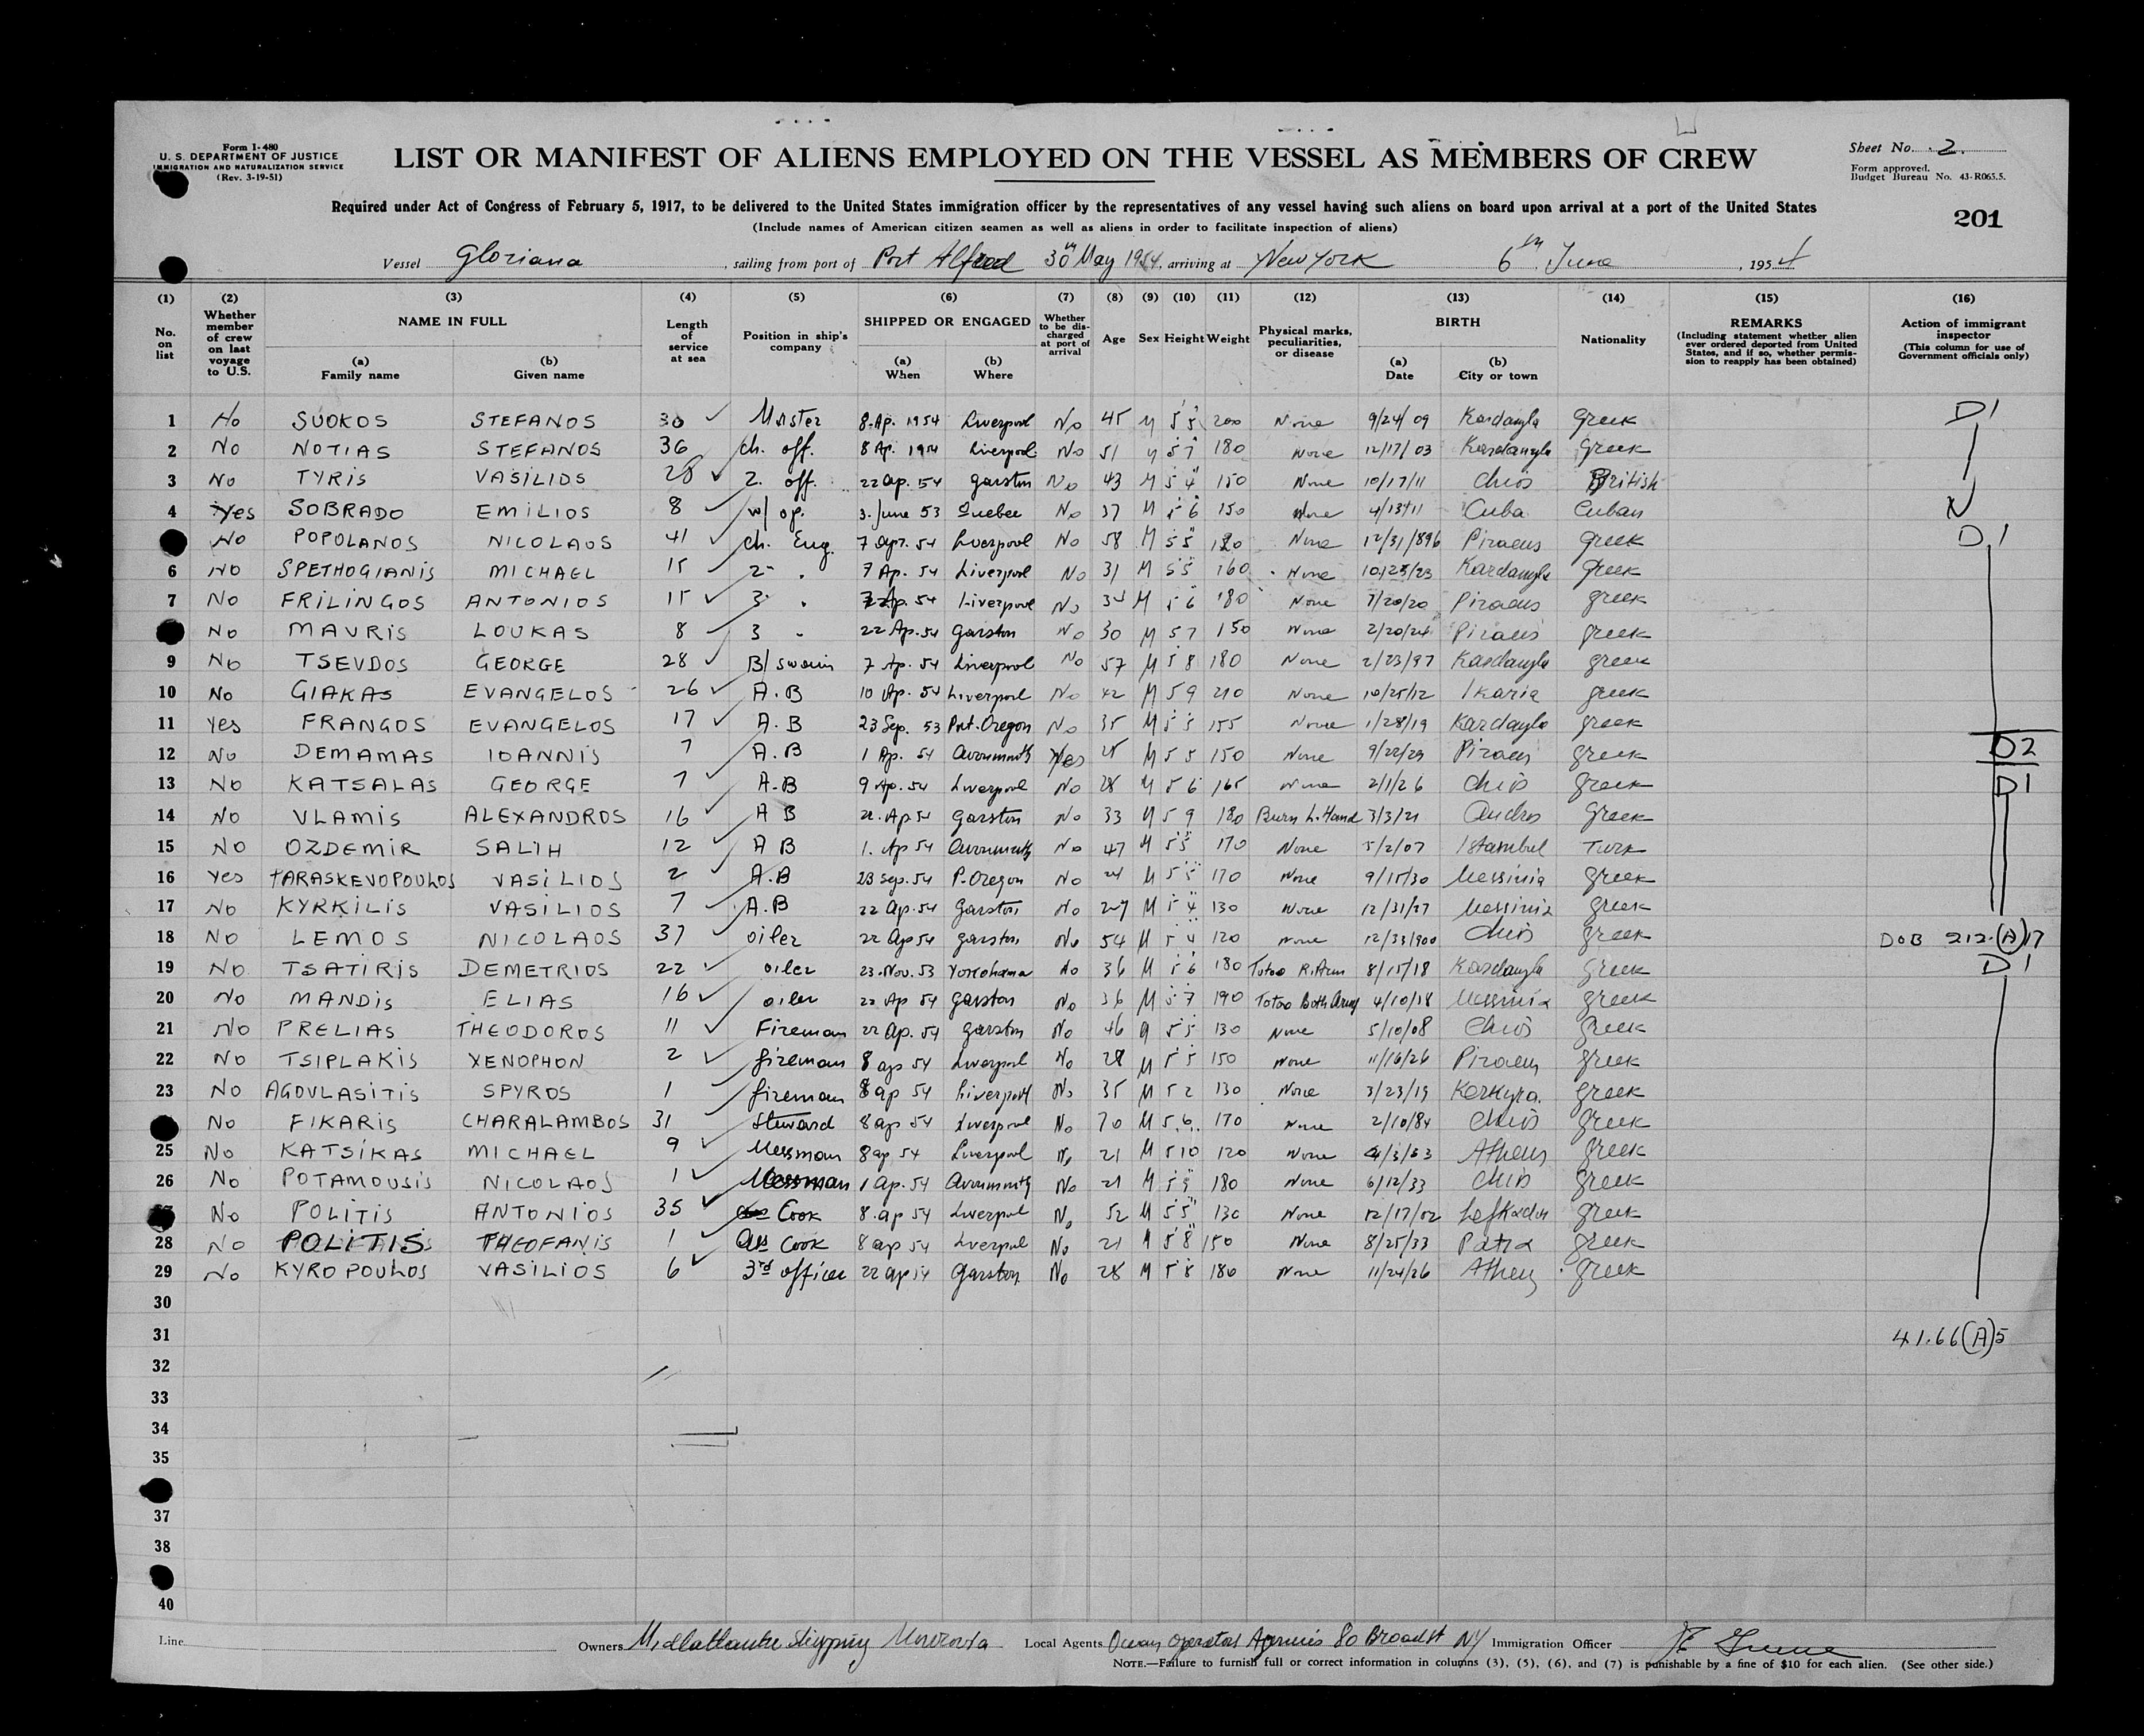 Form I-480
U. S. DEPARTMENT OF JUSTICE
IMMIGRATION AND NATURALIZATION SERVICE
(Rev. 3-19-51)
LIST OR MANIFEST OF ALIENS EMPLOYED ON THE VESSEL AS MEMBERS OF CREW
Sheet No. 2.
Form approved.
Budget Bureau No. 43-R065.5.
Required under Act of Congress of February 5, 1917, to be delivered to the United States immigration officer by the representatives of any vessel having such aliens on board upon arrival at a port of the United States
(Include names of American citizen seamen as well as aliens in order to facilitate inspection of aliens)
201
Vessel Gloriana, sailing from port of Port Alfred 30th May 1954, arriving at New York 6th June, 1954
(1) No. on list (2) Whether member of crew on last voyage to U.S. (3) NAME IN FULL (a) Family name (b) Given name (4) Length of service at sea (5) Position in ship's company (6) SHIPPED OR ENGAGED (a) When (b) Where (7) Whether to be discharged at port of arrival (8) Age (9) Sex (10) Height (11) Weight (12) Physical marks, peculiarities, or disease (13) BIRTH (a) Date (b) City or town (14) Nationality (15) REMARKS (Including statement whether alien ever ordered deported from United States, and if so, whether permission to reapply has been obtained) (16) Action of immigrant inspector (This column for use of Government officials only)
1 No SUOKOS STEFANOS 30 Master 8.Ap. 1954 Liverpool No 45 M 5 5 200 None 9/24/09 Kardamyla Greek D1
2 No NOTIAS STEFANOS 36 ch. off. 8 Ap. 1954 Liverpool No 51 M 5 7 180 None 12/17/03 Kardamyla Greek
3 No TYRIS VASILIOS 28 2. off. 22 ap. 54 Garston No 43 M 5 4 150 None 10/17/11 Chios British
4 Yes SOBRADO EMILIOS 8 w/ op. 3. June 53 Quebec No 37 M 5 6 150 None 4/13/11 Cuba Cuban
No POPOLANOS NICOLAOS 41 ch. Eng. 7 Apr. 54 Liverpool No 58 M 5 5 None 12/31/896 Piraeus Greek D1
6 No SPETHOGIANIS MICHAEL 15 2- 7 Ap. 54 Liverpool No 31 M 5 5 160 None 10/25/23 Kardamyla Greek
7 No FRILINGOS ANTONIOS 15 3 7 Ap. 54 Liverpool No 34 M 5 6 180 None 7/20/20 Piraeus Greek
No MAVRIS LOUKAS 8 3 22 Ap. 54 Garston No 30 M 5 7 150 None 2/20/24 Piraeus Greek
9 No TSEVDOS GEORGE 28 B/swain 7 Ap. 54 Liverpool No 57 M 5 8 180 None 2/23/97 Kardamyla Greek
10 No GIAKAS EVANGELOS 26 A.B 10 Ap. 54 Liverpool No 42 M 5 9 210 None 10/25/12 Ikaria Greek
11 Yes FRANGOS EVANGELOS 17 A.B 23 Sep. 53 Port. Oregon No 35 M 5 5 155 None 1/28/19 Kardamyla Greek
12 No DEMAMAS IOANNIS 7 A.B 1 Ap. 54 Avonmouth Yes 25 M 5 5 150 None 9/22/29 Piraeus Greek D2
13 No KATSALAS GEORGE 7 A.B 9 Ap. 54 Liverpool No 28 M 5 6 165 None 2/1/26 Chios Greek D1
14 No VLAMIS ALEXANDROS 16 A B Ap 54 Garston No 33 M 5 9 180 Burn L. Hand 3/3/21 Andros Greek
15 No OZDEMIR SALIH 12 A B 1. Ap 54 Avonmouth No 47 M 5 5 170 None 5/2/07 Istambul Turk
16 Yes PARASKEVOPOULOS VASILIOS 2 A.B 23 Sep. 54 P. Oregon No 24 M 5 5 170 None 9/15/30 Messinia Greek
17 No KYRKILIS VASILIOS 7 A.B 22 ap. 54 Garston No 27 M 5 4 130 None 12/31/27 Messinia Greek
18 No LEMOS NICOLAOS 37 oiler 22 Ap 54 Garston No 54 M 5 4 120 None 12/33/900 Chios Greek DOB 212.(A)17
19 No TSATIRIS DEMETRIOS 22 oiler 23. Nov. 53 Yokohama No 36 M 5 6 180 Totoo R. Arm 8/15/18 Kardamyla Greek D1
20 No MANDIS ELIAS 16 oiler 22 Ap 54 Garston No 36 M 5 7 190 Totoo Both Arms 4/10/18 Messinia Greek
21 No PRELIAS THEODOROS 11 Fireman 22 Ap. 54 Garston No 46 M 5 5 130 None 5/10/08 Chios Greek
22 No TSIPLAKIS XENOPHON 2 fireman 8 ap 54 Liverpool No 28 M 5 5 150 None 11/16/26 Piraeus Greek
23 No AGOULASITIS SPYROS 1 fireman 8 ap 54 Liverpool No 35 M 5 2 130 None 3/23/19 Kerkyra. Greek
No FIKARIS CHARALAMBOS 31 Steward 8 ap 54 Liverpool No 70 M 5.6. 170 None 2/10/84 Chios Greek
25 No KATSIKAS MICHAEL 9 Messman 8 ap 54 Liverpool No 21 M 5 10 120 None 4/3/33 Athens Greek
26 No POTAMOUSIS NICOLAOS 1 Messman 1 ap. 54 Avonmouth No 21 M 5 5 180 None 6/12/33 Chios Greek
No POLITIS ANTONIOS 35 Cook 8. ap 54 Liverpool No 52 M 5 5 130 None 12/17/02 Lefkados Greek
28 No POLITIS THEOFANIS 1 Ass Cook 8 ap 54 Liverpool No 21 M 5 8 150 None 8/25/33 Patra Greek
29 No KYROPOULOS VASILIOS 6 3rd officer 22 ap 54 Garston No 28 M 5 8 180 None 11/24/26 Athens Greek
30
31 41.66(A)5
32
33
34
35
37
38
40
Line Owners Midatlantic Shipping Monrovia Local Agents Ocean Operators Agencies 80 Broad St NY Immigration Officer
NOTE.—Failure to furnish full or correct information in columns (3), (5), (6), and (7) is punishable by a fine of $10 for each alien. (See other side.)